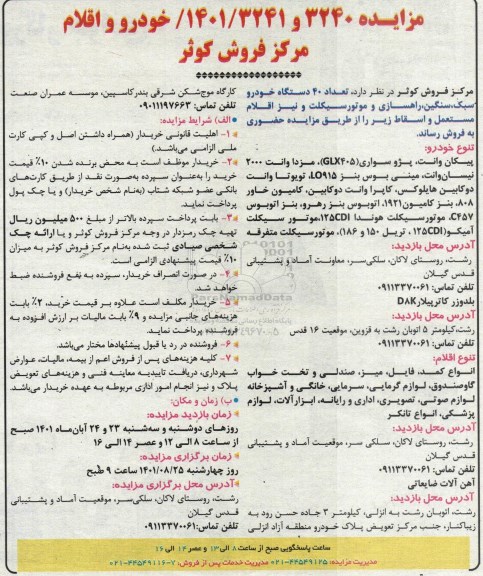 مزایده ۳۲۴۰ و ۱۴۰۱/۳۲۴۱/ خودرو و اقلام
مرکز فروش کوثر
مرکز فروش کوثر در نظر دارد، تعداد ۴۰ دستگاه خودرو
سبک،سنگین،راهسازی و موتورسیکلت و نیز اقلام
مستعمل و اسقاط زیر را از طریق مزایده حضوری
به فروش رساند.
تنوع خودرو:
پیکان وانت، پژو سواری(GLX۴۰۵)، مزدا وانت ۲۰۰۰
نیسان‌وانت، مینی بوس بنز LO۹۱۵، تویوتا وانت
دوکابین هایلوکس، کاپرا وانت دوکابین، کامیون خاور
۸۰۸، بنز کامیون ۱۹۲۱، اتوبوس بنز رهرو، بنز اتوبوس
C۴۵۷، موتورسیکلت هوندا ۱۲۵CDI،موتور سیکلت
آمیکو(۱۲۵CDI، تریل ۱۵۰ و ۱۸۶)، موتورسیکلت متفرقه
آدرس محل بازدید:
رشت، روستای لاکان، سلکی‌سر، معاونت آماد و پشتیبانی
قدس گیلان
تلفن تماس: ۰۹۱۱۳۳۷۰۰۶۱
بلدوزر کاترپیلار DAK
آدرس محل بازدید:
رشت،کیلومتر ۵ اتوبان رشت به قزوین، موقعیت ۱۶ قدس
تلفن تماس: ۰۹۱۱۳۳۷۰۰۶۱
تنوع اقلام:
انواع کمد، فایل، میز، صندلی و تخت خواب
گاوصندوق، لوازم گرمایی، سرمایی، خانگی و آشپزخانه
لوازم صوتی، تصویری، اداری و رایانه، ابزارآلات، لوازم
پزشکی، انواع تانکر
آدرس محل بازدید:
رشت، روستای لاکان، سلکی سر، موقعیت آماد و پشتیبانی
قدس گیلان
تلفن تماس: ۰۹۱۱۳۳۷۰۰۶۱
آهن آلات ضایعاتی
آدرس محل بازدید:
رشت، اتوبان رشت به انزلی، کیلومتر ۳ جاده حسن رود به
زیباکنار، جنب مرکز تعویض پلاک خودرو منطقه آزاد انزلی
کارگاه موج‌شکن شرقی بندرکاسپین، موسسه عمران صنعت
تلفن تماس: ۰۹۰۱۱۱۹۷۶۶۳
الف) شرایط مزایده:
۱- اهلیت قانونی خریدار (همراه داشتن اصل و کپی کارت
ملی الزامی می‌باشد.)
۲- خریدار موظف است به محض برنده شدن ۱۰٪ قیمت
خرید را به‌عنوان سپرده به‌صورت نقد از طریق کارت‌های
بانکی عضو شبکه شتاب (به‌نام شخص خریدار) و یا چک پول
پرداخت نمایند.
۳- بابت پرداخت سپرده بالاتر از مبلغ ۵۰۰ میلیون ریال
تهیه چک رمزدار در وجه مرکز فروش کوثر و یا ارائه چک
شخصی صیادی ثبت شده به‌نام مرکز فروش کوثر به میزان
۱۰٪ قیمت پیشنهادی الزامی است.
۴- در صورت انصراف خریدار، سپرده به نفع فروشنده ضبط
خواهد شد.
۵- خریدار مکلف است علاوه بر قیمت خرید، ۲٪ بابت
هزینه‌های جانبی مزایده و ۹٪ بابت مالیات بر ارزش افزوده به
فروشنده پرداخت نماید.
۶- فروشنده در رد یا قبول پیشنهادها مختار می‌باشد.
۷- کلیه هزینه‌های پس از فروش اعم از بیمه، مالیات، عوارض
شهرداری، دریافت تاییدیه معاینه فنی و هزینه‌های تعویض
پلاک و نیز انجام امور اداری مربوطه به عهده خریدار می‌باشد.
ب) زمان و مکان:
زمان بازدید مزایده:
روزهای دوشنبه و سه‌شنبه ۲۳ و ۲۴ آبان‌ماه ۱۴۰۱ صبح
از ساعت ۸ الی ۱۲ و عصر ۱۴ الی ۱۶
زمان برگزاری مزایده:
روز چهارشنبه ۱۴۰۱/۰۸/۲۵ ساعت ۹ صبح
آدرس محل برگزاری مزایده:
رشت، روستای لاکان، سلکی‌سر، موقعیت آماد و پشتیبانی
قدس گیلان
تلفن تماس: ۰۹۱۱۳۳۷۰۰۶۱
ساعت پاسخگویی صبح از ساعت ۸ الی ۱۳ و عصر ۱۴ الی ۱۶
مدیریت مزایده: ۰۲۱-۴۴۵۴۹۱۲۵ مدیریت خدمات پس از فروش: ۷-۰۲۱-۴۴۵۴۹۱۱۶